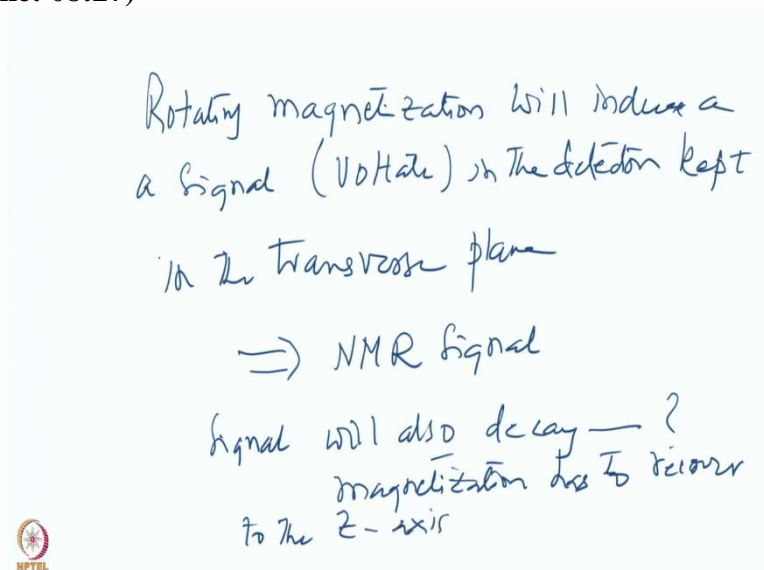 Rotating magnetization will induce a
a signal (Voltate) in the detector kept
in the transverse plane
⇒ NMR signal
Signal will also decay — ?
magnetization has to recover
to the z-axis
NPTEL